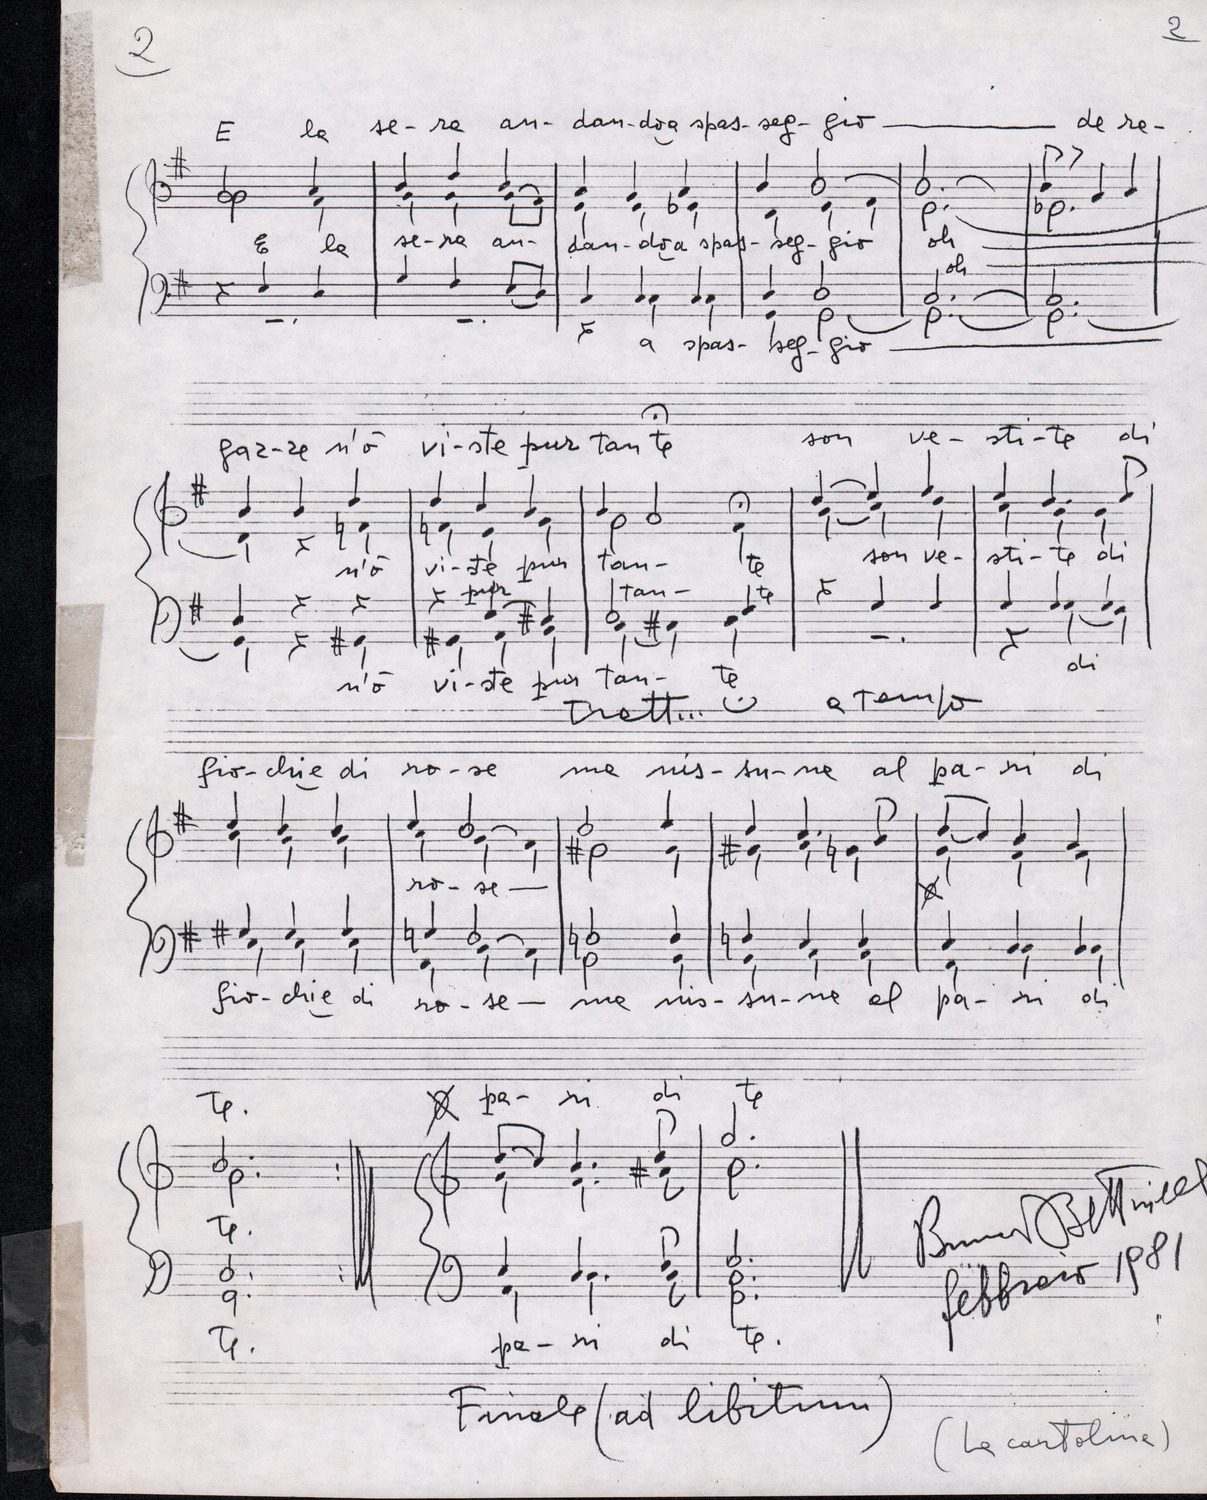 2
2
E la se-ra an-dan-do a spas-seg-gio de re-
E la se-ra an-dan-do a spas-seg-gio oh
oh
a spas-seg-gio
gaz-ze n'ò vi-ste pur tan te son ve-sti-te di
n'ò vi-ste pur tan- te son ve-sti-te di
pur tan- te
di
n'ò vi-ste pur tan- te
Tratt... a Tempo
fio-chie di ro-se me nis-su-ne al pa-ri di
ro-se
fio-chie di ro-se me nis-su-ne al pa-ri di
Te. pa-ri di te
Te.
Te. pa-ri di te.
Bruno Bettinelli
febbraio 1981
Finale (ad libitum)
(La cartolina)